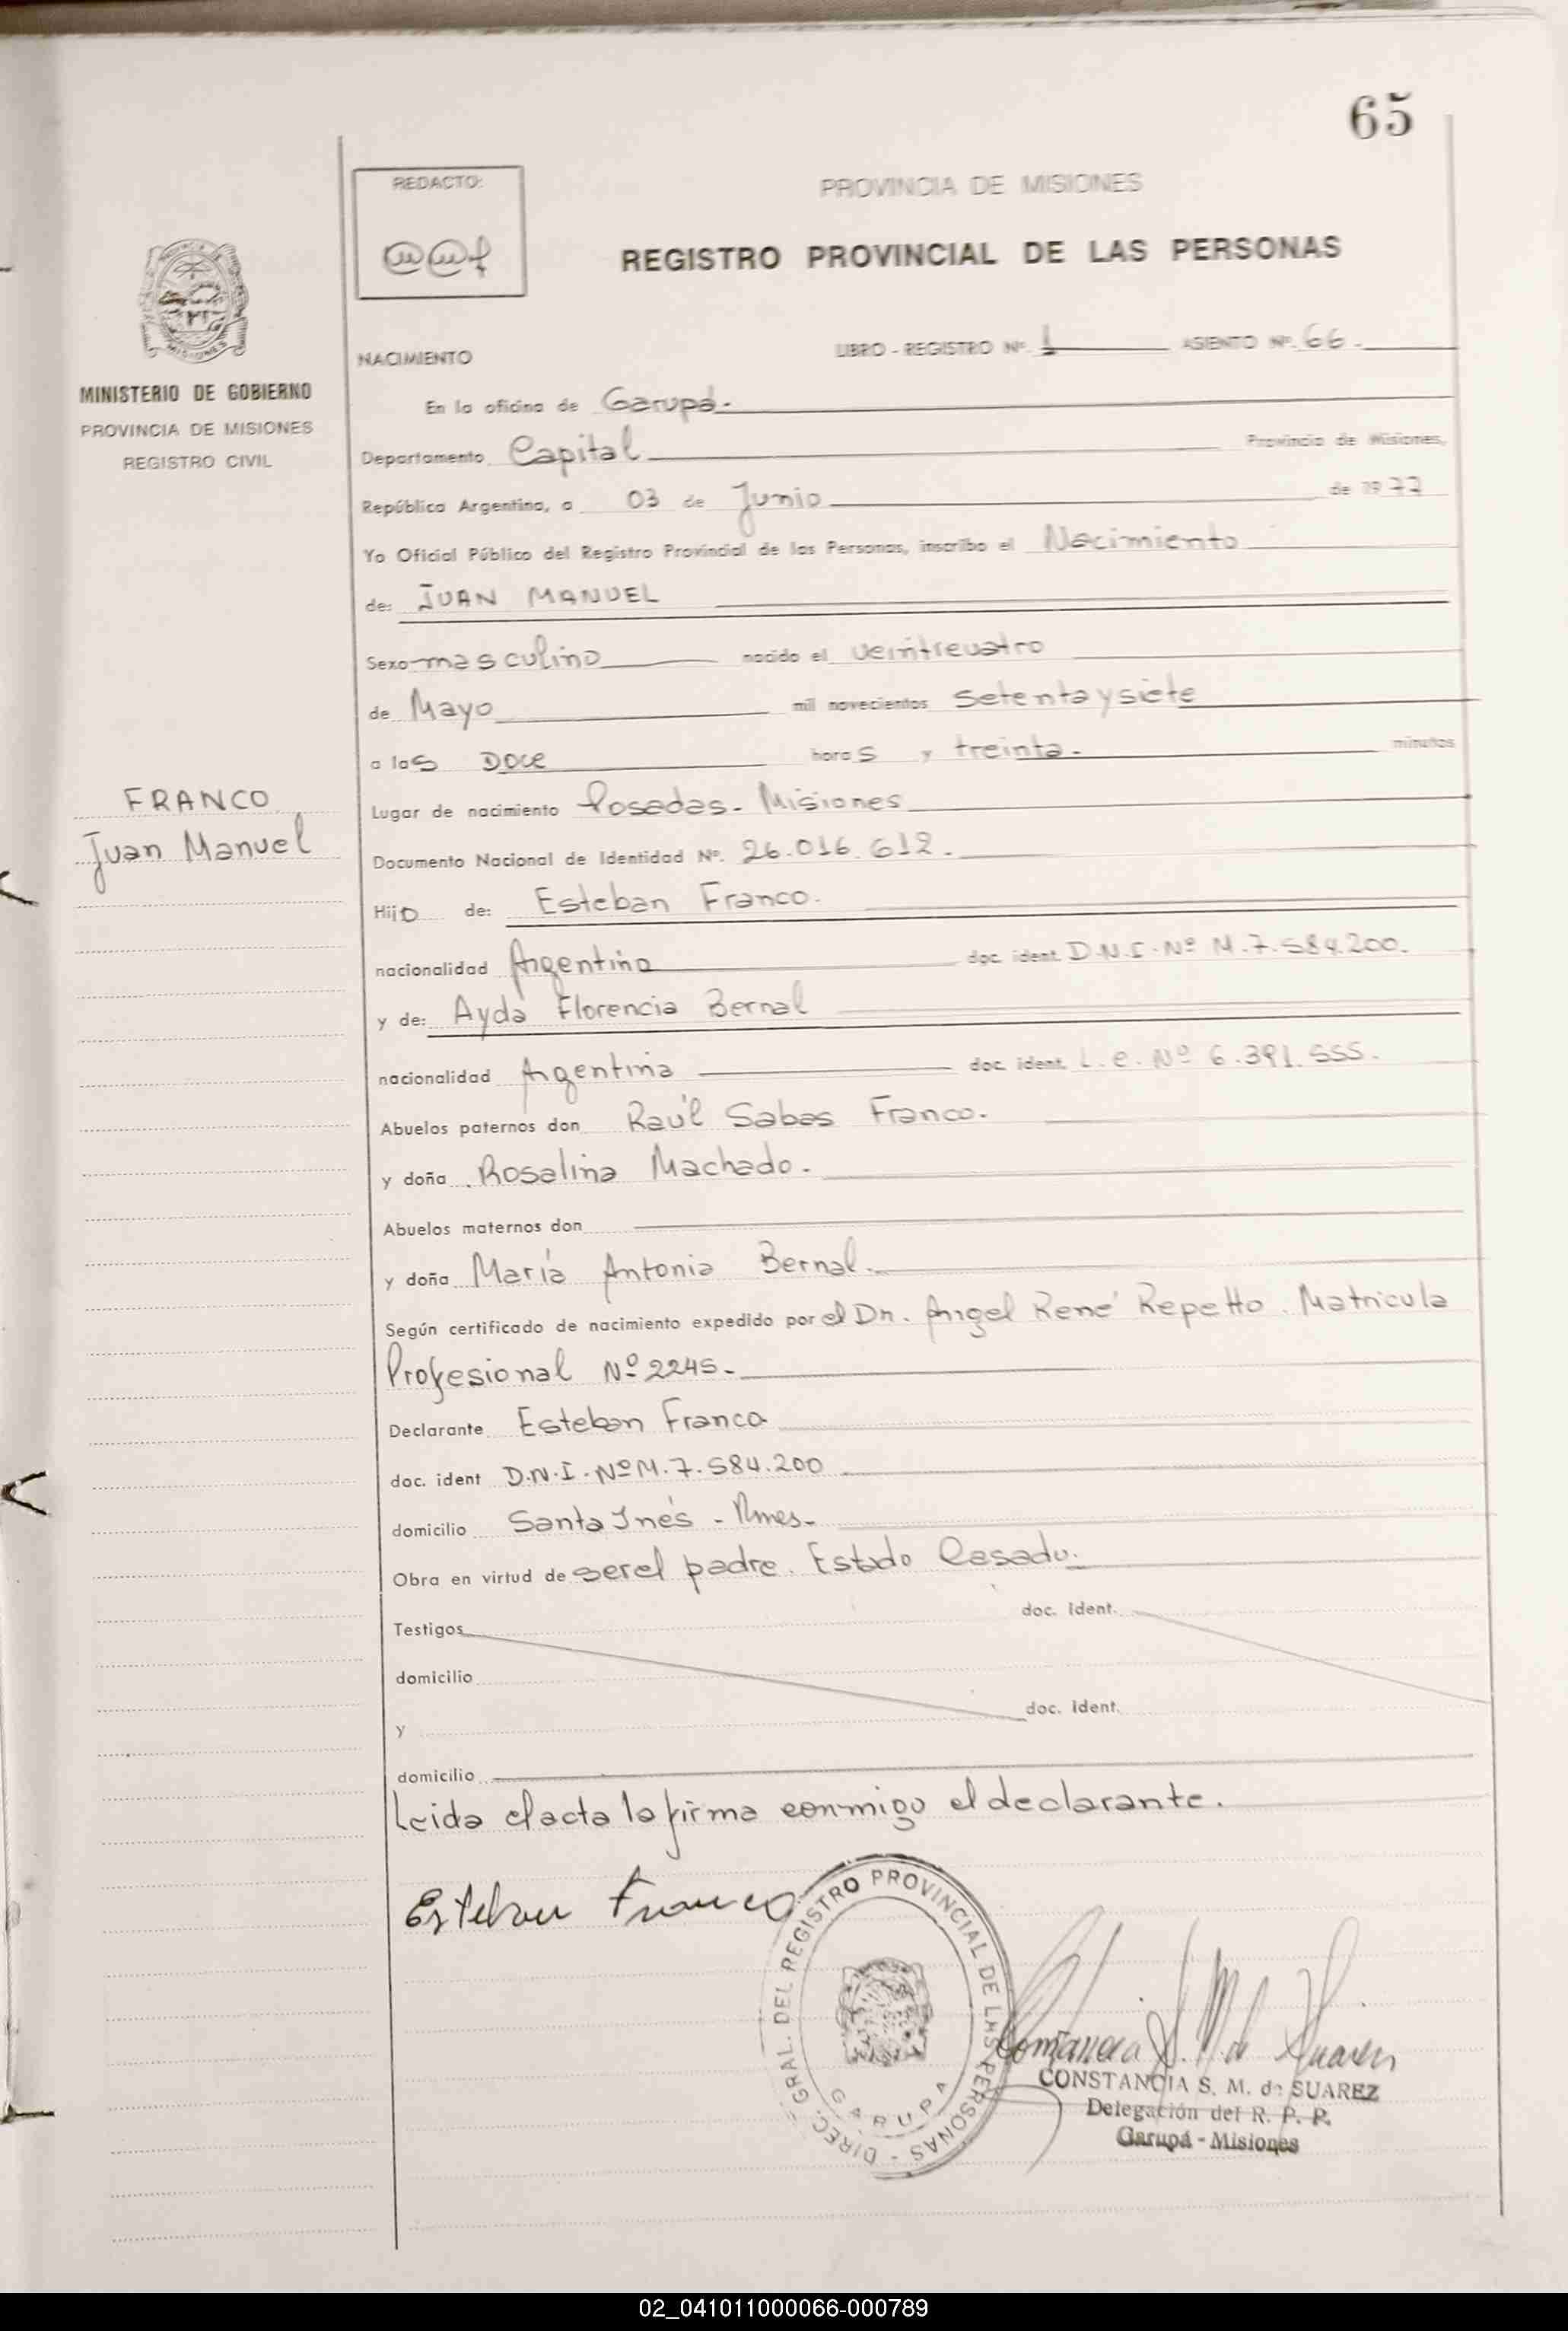 65
REDACTO:
PROVINCIA DE MISIONES
REGISTRO PROVINCIAL DE LAS PERSONAS
MISIONES
MINISTERIO DE GOBIERNO
PROVINCIA DE MISIONES
REGISTRO CIVIL
NACIMIENTO
LIBRO - REGISTRO Nº. 1 ASIENTO Nº. 66.
En la oficina de Garupá.
Departamento Capital Provincia de Misiones,
República Argentina, a 03 de Junio de 1977
Yo Oficial Público del Registro Provincial de las Personas, inscribo el Nacimiento
de: JUAN MANUEL
Sexo masculino nacido el veinticuatro
de Mayo mil novecientos setenta y siete
a las Doce horas y treinta. minutos
FRANCO
Juan Manuel
Lugar de nacimiento Posadas - Misiones
Documento Nacional de Identidad Nº. 26.016.612.
Hijo de: Esteban Franco.
nacionalidad Argentino doc. ident. D.N.I. Nº M.7.584.200.
y de: Ayda Florencia Bernal
nacionalidad Argentina doc. ident. L.C. Nº 6.391.555.
Abuelos paternos don Raúl Sabas Franco.
y doña Rosalina Machado.
Abuelos maternos don
y doña María Antonia Bernal.
Según certificado de nacimiento expedido por el Dr. Angel René Repetto. Matricula
Profesional Nº 2245.
Declarante Esteban Franco
doc. ident D.N.I. Nº M.7.584.200
domicilio Santa Inés - Mnes.
Obra en virtud de ser el padre. Estado Casado.
Testigos doc. ident.
domicilio
y doc. ident.
domicilio
Leida el acta la firma conmigo el declarante.
Esteban Franco
DIREC. GRAL. DEL REGISTRO PROVINCIAL DE LAS PERSONAS -
GARUPA
Constancia S. M. de Suarez
CONSTANCIA S. M. de SUAREZ
Delegación del R. P. P.
Garupá - Misiones
02_041011000066-000789